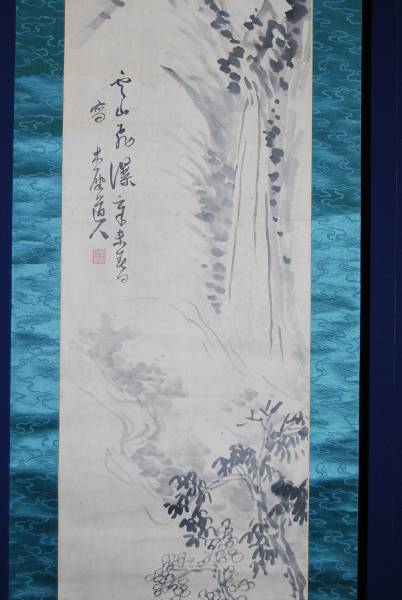 雲山飛瀑辛未春日
寫 木屋道人